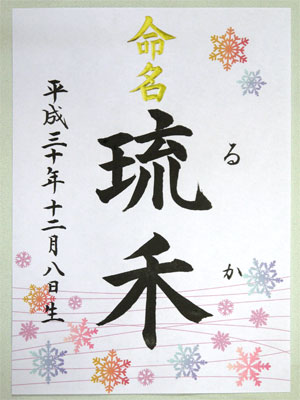 命名
琉禾
るか
平成三十年十二月八日生